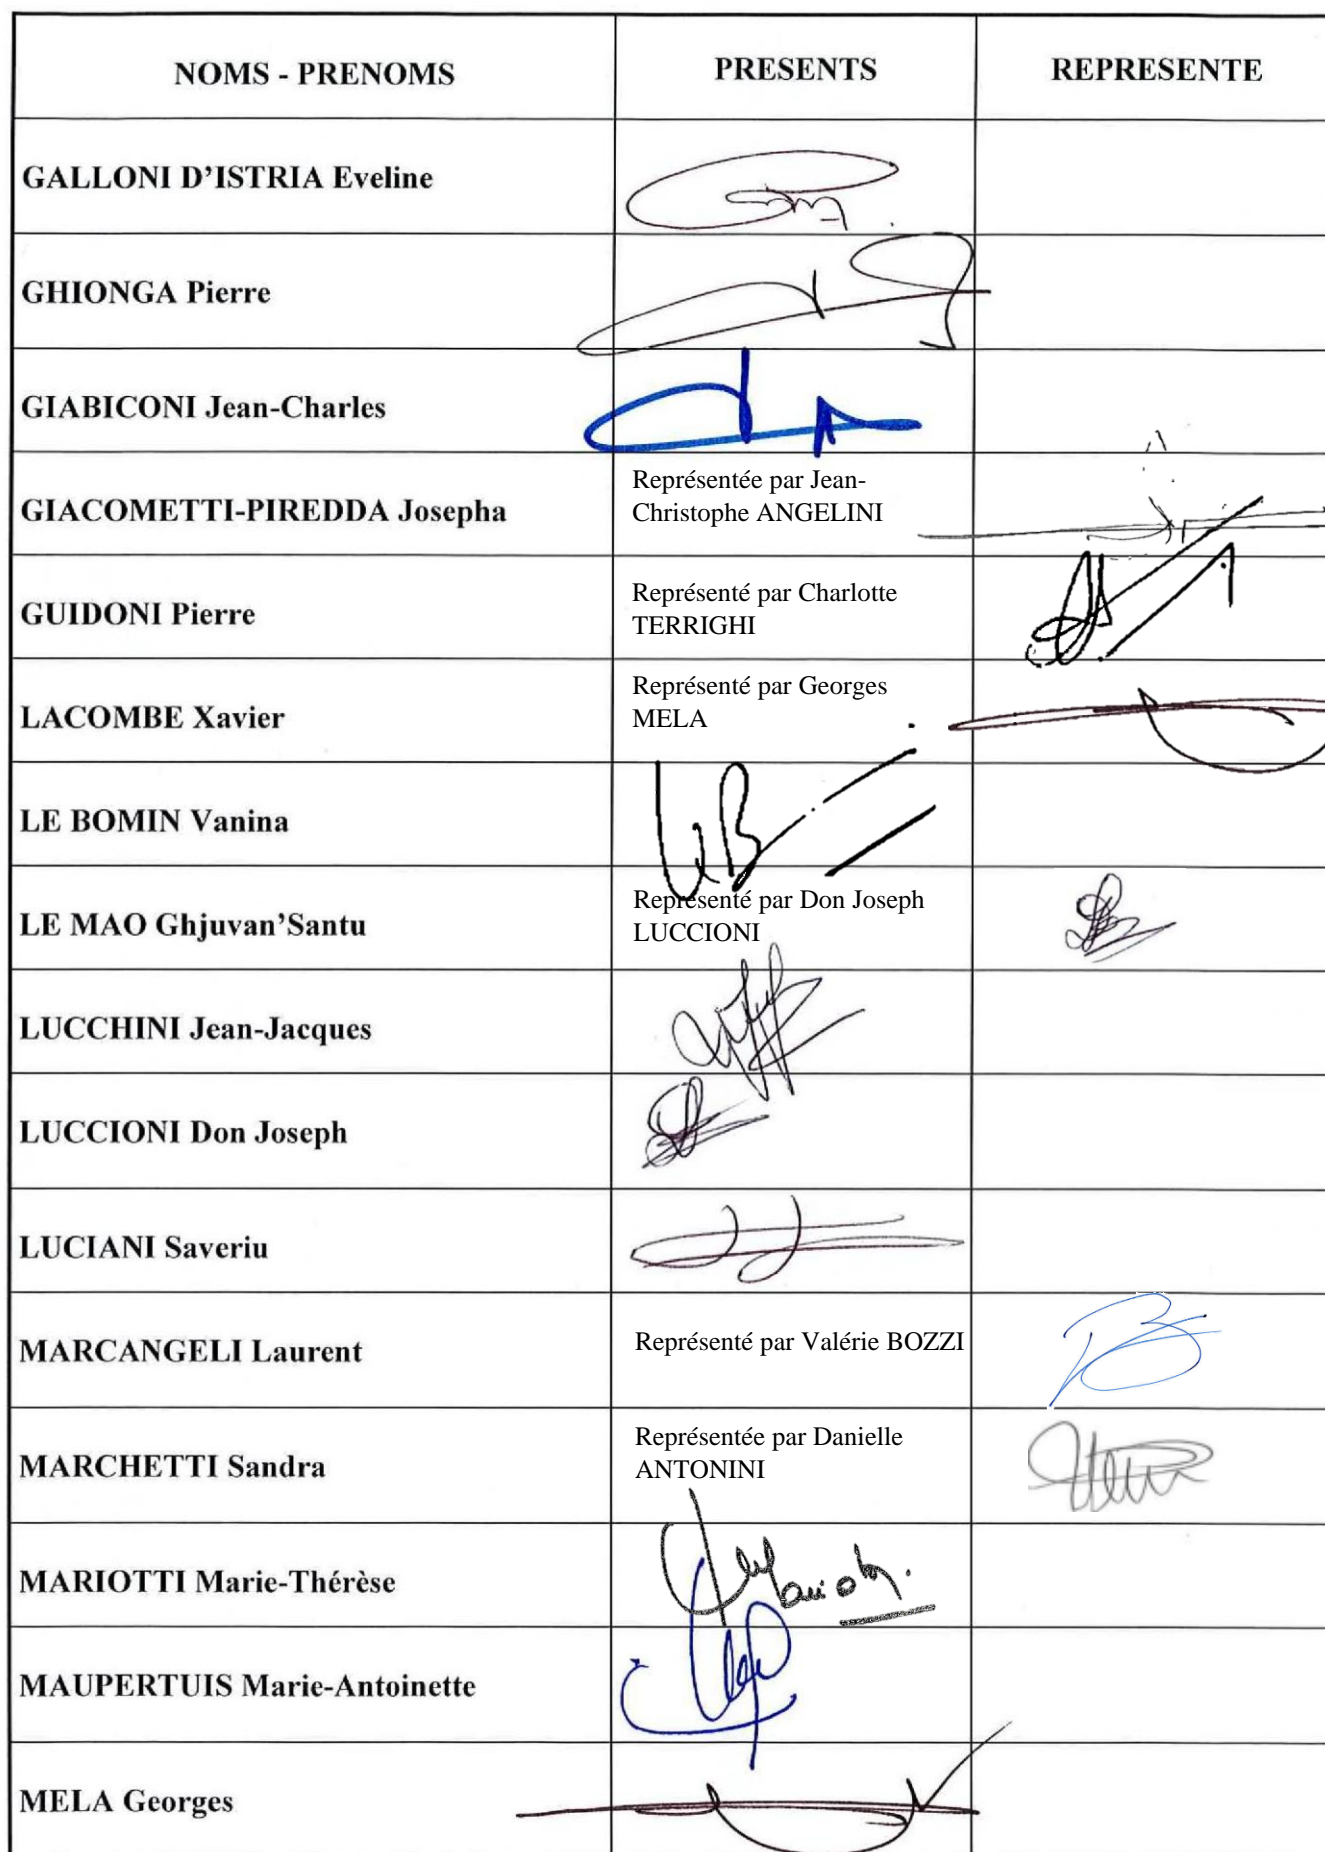 NOMS - PRENOMS PRESENTS REPRESENTE
GALLONI D'ISTRIA Eveline
GHIONGA Pierre
GIABICONI Jean-Charles
GIACOMETTI-PIREDDA Josepha
Représentée par Jean-
Christophe ANGELINI
GUIDONI Pierre
Représenté par Charlotte
TERRIGHI
LACOMBE Xavier
Représenté par Georges
MELA
LE BOMIN Vanina
LE MAO Ghjuvan'Santu
Représenté par Don Joseph
LUCCIONI
LUCCHINI Jean-Jacques
LUCCIONI Don Joseph
LUCIANI Saveriu
MARCANGELI Laurent
Représenté par Valérie BOZZI
MARCHETTI Sandra
Représentée par Danielle
ANTONINI
MARIOTTI Marie-Thérèse
MAUPERTUIS Marie-Antoinette
MELA Georges